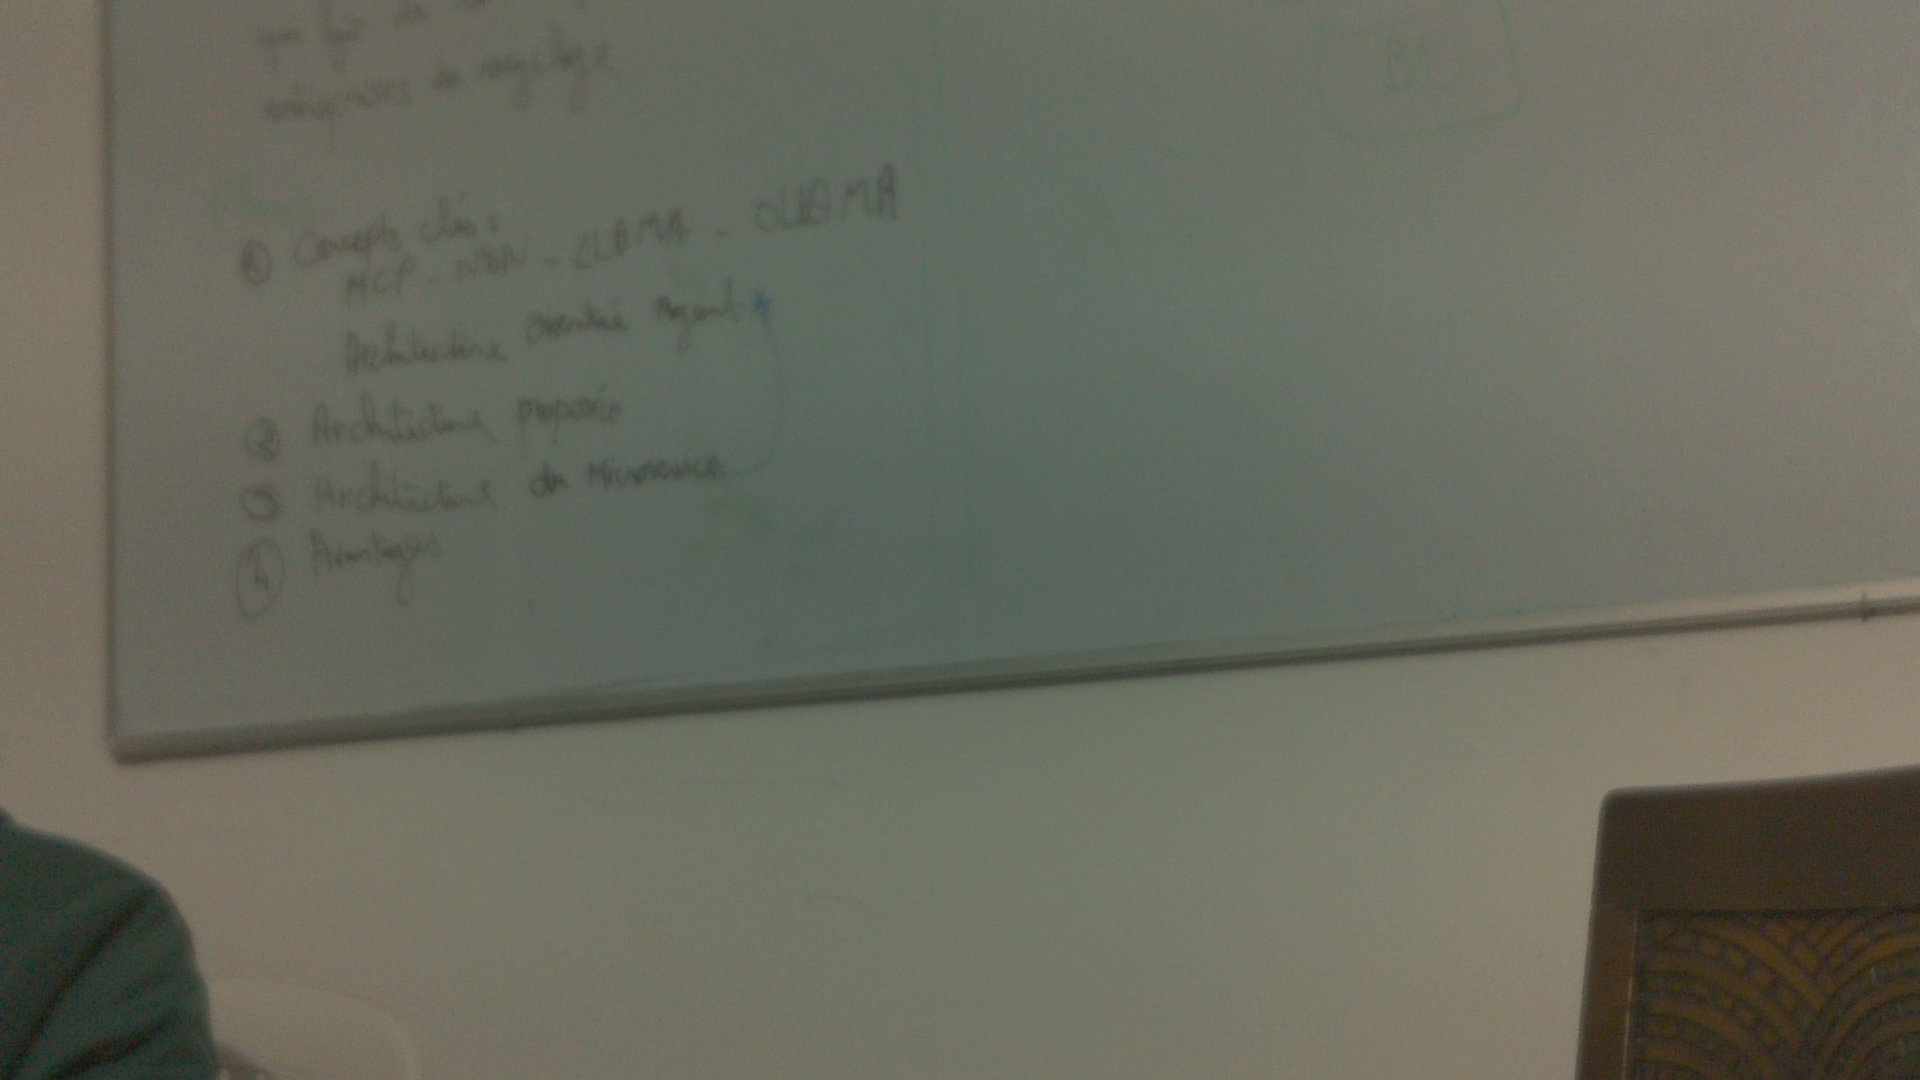 entreprises de recyclage
① Concepts clés :
MCP - N8N - LLAMA - OLLAMA
Architecture orientée Agent
② Architecture proposée
③ Architecture du Microservice
④ Avantages